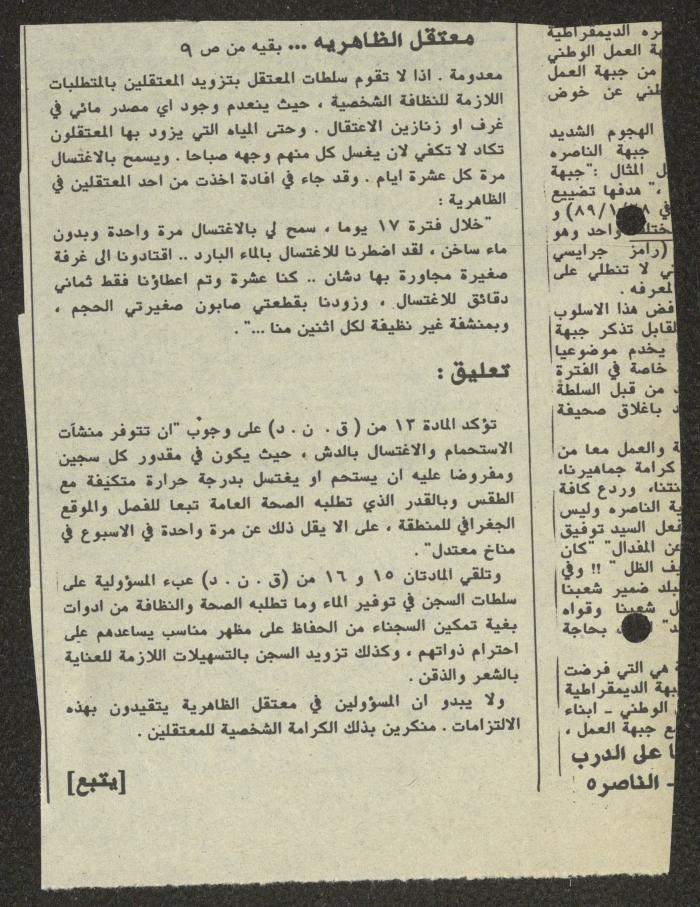 معتقل الظاهريه ... بقيه من ص ٩
معدومة . اذا لا تقوم سلطات المعتقل بتزويد المعتقلين بالمتطلبات
اللازمة للنظافة الشخصية ، حيث ينعدم وجود اي مصدر مائي في
غرف او زنازين الاعتقال . وحتى المياه التي يزود بها المعتقلون
تكاد لا تكفي لان يغسل كل منهم وجهه صباحا . ويسمح بالاغتسال
مرة كل عشرة ايام . وقد جاء في افادة اخذت من احد المعتقلين في
الظاهرية :
"خلال فترة ١٧ يوما ، سمح لي بالاغتسال مرة واحدة وبدون
ماء ساخن ، لقد اضطرنا للاغتسال بالماء البارد .. اقتادونا الى غرفة
صغيرة مجاورة بها دشان .. كنا عشرة وتم اعطاؤنا فقط ثماني
دقائق للاغتسال ، وزودنا بقطعتي صابون صغيرتي الحجم ،
وبمنشفة غير نظيفة لكل اثنين منا ..." .
تعليق :
تؤكد المادة ١٣ من ( ق . ن . د) على وجوب "ان تتوفر منشآت
الاستحمام والاغتسال بالدش ، حيث يكون في مقدور كل سجين
ومفروضا عليه ان يستحم او يغتسل بدرجة حرارة متكيفة مع
الطقس وبالقدر الذي تطلبه الصحة العامة تبعا للفصل والموقع
الجغرافي للمنطقة ، على الا يقل ذلك عن مرة واحدة في الاسبوع في
مناخ معتدل" .
وتلقي المادتان ١٥ و ١٦ من (ق . ن . د) عبء المسؤولية على
سلطات السجن في توفير الماء وما تطلبه الصحة والنظافة من ادوات
بغية تمكين السجناء من الحفاظ على مظهر مناسب يساعدهم على
احترام ذواتهم ، وكذلك تزويد السجن بالتسهيلات اللازمة للعناية
بالشعر والذقن .
ولا يبدو ان المسؤولين في معتقل الظاهرية يتقيدون بهذه
الالتزامات . منكرين بذلك الكرامة الشخصية للمعتقلين .
[يتبع]
الديمقراطية
العمل الوطني
من جبهة العمل
عن خوض
الهجوم الشديد
جبهة الناصره
المثال : "جبهة
" هدفها تضييع
٨٩/١/ ) و
واحد وهو
(رامز جرايسي
لا تنطلي على
لمعرفه .
هذا الاسلوب
تذكر جبهة
يخدم موضوعيا
خاصة في الفترة
من قبل السلطة
باغلاق صحيفة
والعمل معا من
كرامة جماهيرنا،
وردع كافة
الناصره وليس
السيد توفيق
المفدال" "كان
الظل " !! وفي
ضمير شعبنا
شعبنا وقواه
بحاجة
هي التي فرضت
الديمقراطية
الوطني - ابناء
جبهة العمل ،
على الدرب
- الناصره